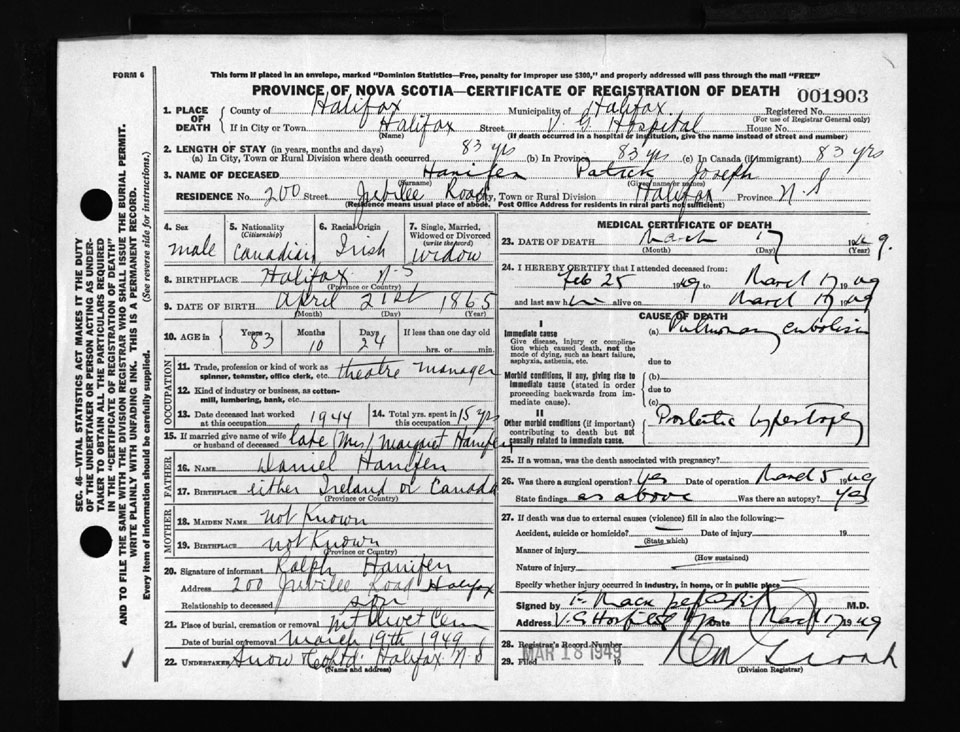 FORM 6
This form if placed in an envelope, marked "Dominion Statistics—Free, penalty for improper use $300," and properly addressed will pass through the mail "FREE"
PROVINCE OF NOVA SCOTIA—CERTIFICATE OF REGISTRATION OF DEATH 001903
1. PLACE OF DEATH
County of Halifax Municipality of Halifax Registered No.
(For use of Registrar General only)
If in City or Town Halifax Street V. G. Hospital House No.
(Name) (If death occurred in a hospital or institution, give the name instead of street and number)
2. LENGTH OF STAY (in years, months and days)
(a) In City, Town or Rural Division where death occurred 83 yrs (b) In Province 83 yrs (c) In Canada (if immigrant) 83 yrs
3. NAME OF DECEASED Hanifen Patrick Joseph
(Surname) (Given name or names)
RESIDENCE No. 200 Street Jubilee Road City, Town or Rural Division Halifax Province N.S
(Residence means usual place of abode. Post Office Address for residents in rural parts not sufficient)
4. Sex male
5. Nationality (Citizenship) Canadian
6. Racial Origin Irish
7. Single, Married, Widowed or Divorced (write the word) widow
8. BIRTHPLACE Halifax N-S
(Province or Country)
9. DATE OF BIRTH April 21st 1865
(Month) (Day) (Year)
10. AGE in Years 83 Months 10 Days 24 If less than one day old
hrs. or min.
OCCUPATION
11. Trade, profession or kind of work as spinner, teamster, office clerk, etc. theatre manager
12. Kind of industry or business, as cotton-mill, lumbering, bank, etc.
13. Date deceased last worked at this occupation 1944 14. Total yrs. spent in this occupation 15 yrs
15. If married give name of wife or husband of deceased late (Mrs) Margaret Hanifen
FATHER
16. NAME Daniel Hanifen
17. BIRTHPLACE either Ireland or Canada
(Province or Country)
MOTHER
18. MAIDEN NAME not Known
19. BIRTHPLACE not Known
(Province or Country)
20. Signature of informant Ralph Hanifen
Address 200 Jubilee Road Halifax
Relationship to deceased son
21. Place of burial, cremation or removal Mt Olivet Cem
Date of burial or removal March 19th 1949
22. Undertaker Snow Halifax N.S
(Name and address)
MEDICAL CERTIFICATE OF DEATH
23. DATE OF DEATH March 17 1949.
(Month) (Day) (Year)
24. I HEREBY CERTIFY that I attended deceased from:
Feb 25 1949 to March 17 1949
and last saw him alive on March 17 1949
CAUSE OF DEATH
I
Immediate cause (a) Pulmonary embolism
Give disease, injury or complication which caused death, not the mode of dying, such as heart failure, asphyxia, asthenia, etc.
due to
Morbid conditions, if any, giving rise to immediate cause (stated in order proceeding backwards from immediate cause).
(b)
due to
(c)
II
Other morbid conditions (if important) contributing to death but not causally related to immediate cause. Prostatic hypertrophy
25. If a woman, was the death associated with pregnancy?
26. Was there a surgical operation? yes Date of operation March 5 1949
State findings as above Was there an autopsy? yes
27. If death was due to external causes (violence) fill in also the following:—
Accident, suicide or homicide? Date of injury 19
(State which)
Manner of injury
(How sustained)
Nature of injury
Specify whether injury occurred in industry, in home, or in public place
Signed by M.D.
Address V.G Hospital Date March 17 1949
28. Registrar's Record Number
29. Filed MAR 18 1949 19
(Division Registrar)
SEC. 46—VITAL STATISTICS ACT MAKES IT THE DUTY
OF THE UNDERTAKER OR PERSON ACTING AS UNDER-
TAKER TO OBTAIN ALL THE PARTICULARS REQUIRED
IN THE "CERTIFICATE OF REGISTRATION OF DEATH"
AND TO FILE THE SAME WITH THE DIVISION REGISTRAR WHO SHALL ISSUE THE BURIAL PERMIT.
WRITE PLAINLY WITH UNFADING INK. THIS IS A PERMANENT RECORD.
Every item of information should be carefully supplied. (See reverse side for instructions.)